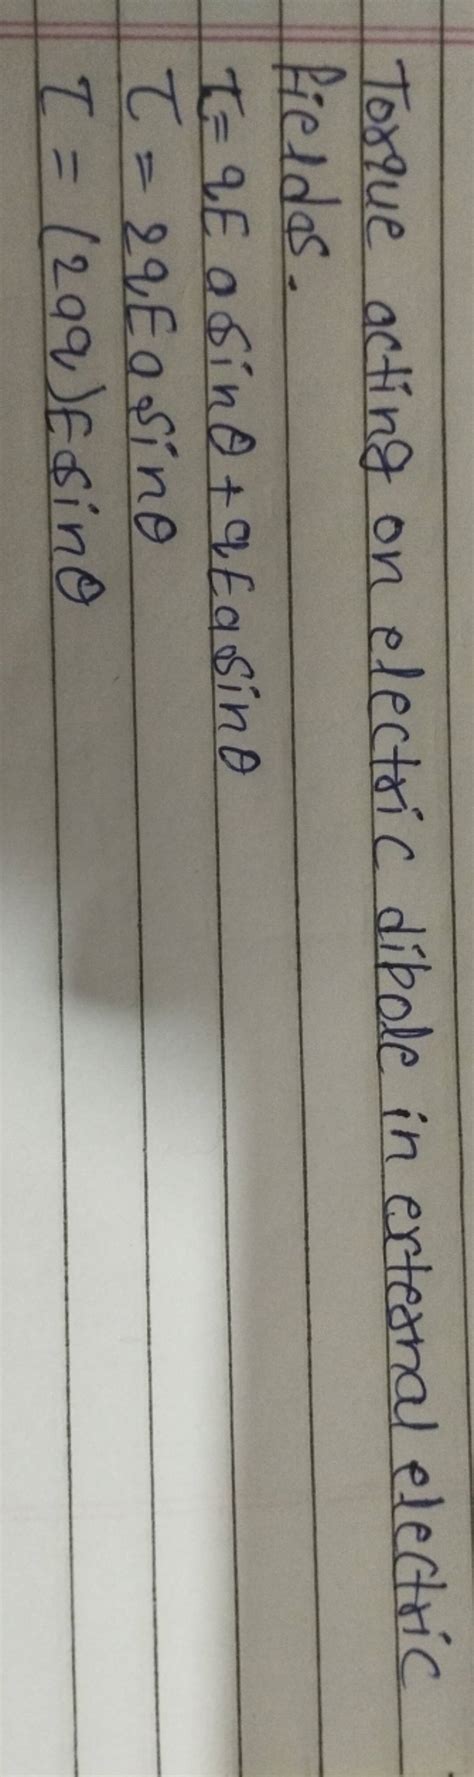 Torque acting on electric dibole in external electric
fields.
τ = qE a sinθ + qEa sinθ
τ = 2qEa sinθ
τ = (2aq)E sinθ